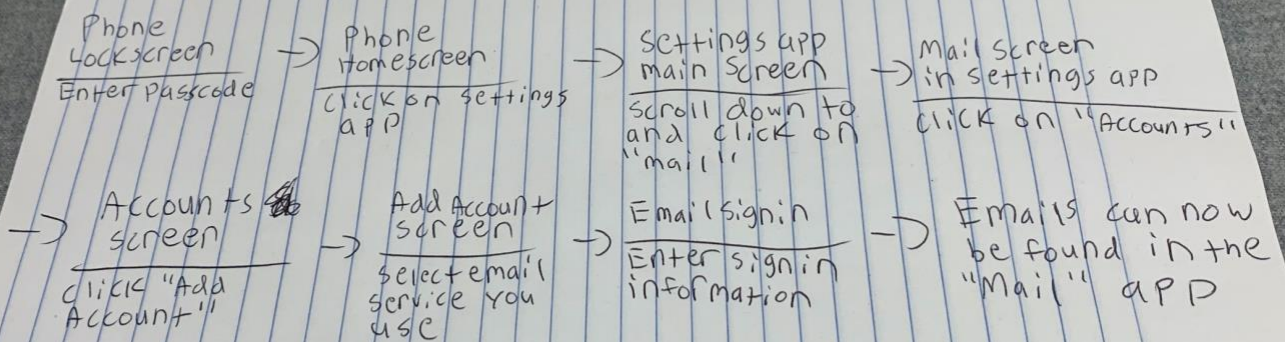 Phone
Lockscreen
Enter passcode
→ Phone
Homescreen
Click on settings
app
→ Settings app
main screen
scroll down to
and click on
"mail"
→ Mail screen
in settings app
click on "Accounts"
→ Accounts
screen
click "Add
Account"
→ Add Account
screen
select email
service you
use
→ Email sign in
Enter sign in
information
→ Emails can now
be found in the
"Mail" app